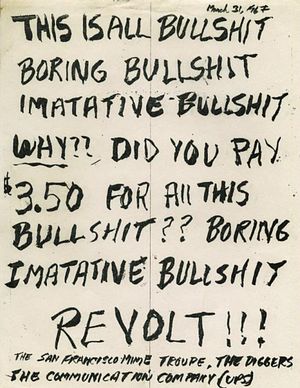 March 31, 1967
THIS IS ALL BULLSHIT
BORING BULLSHIT
IMATATIVE BULLSHIT
WHY?? DID YOU PAY
$3.50 FOR All THIS
BULLSHIT?? BORING
IMATATIVE BULLSHIT
REVOLT!!!
THE SAN FRANCISCO MIME TROUPE, THE DIGGERS
THE COMMUNICATION COMPANY (UPS)